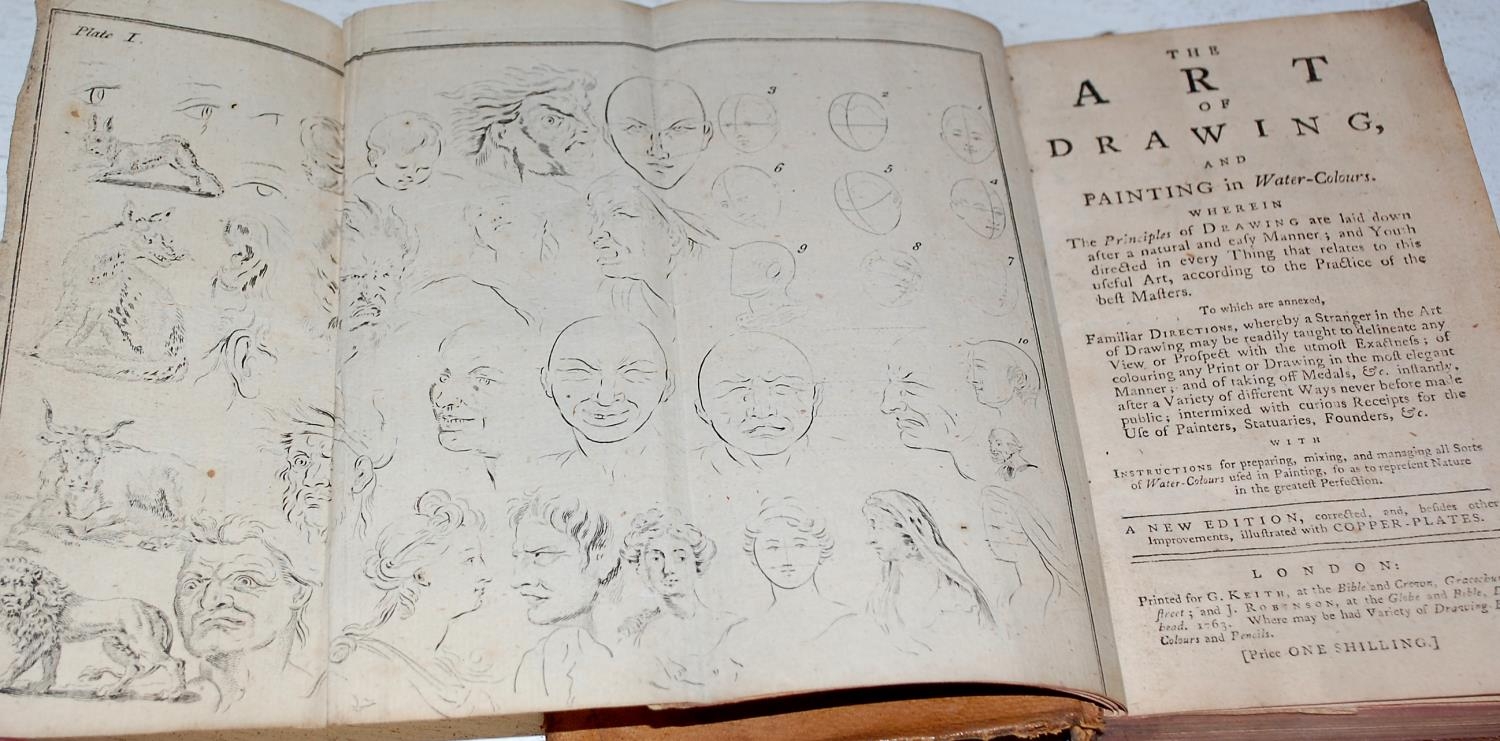 Plate I.
3 2 1
6 5 4
9 8 7
10
THE
A R T
OF
DRAWING,
AND
PAINTING in Water-Colours.
WHEREIN
The Principles of DRAWING are laid down
after a natural and eaſy Manner; and Youth
directed in every Thing that relates to this
uſeful Art, according to the Practice of the
beſt Maſters.
To which are annexed,
Familiar DIRECTIONS, whereby a Stranger in the Art
of Drawing may be readily taught to delineate any
View or Proſpect with the utmoſt Exactneſs; of
colouring any Print or Drawing in the moſt elegant
Manner; and of taking off Medals, &c. inſtantly,
after a Variety of different Ways never before made
public; intermixed with curious Receipts for the
Uſe of Painters, Statuaries, Founders, &c.
WITH
INSTRUCTIONS for preparing, mixing, and managing all Sorts
of Water-Colours uſed in Painting, ſo as to repreſent Nature
in the greateſt Perfection.
A NEW EDITION, corrected, and, beſides other
Improvements, illuſtrated with COPPER-PLATES.
LONDON:
Printed for G. KEITH, at the Bible and Crown,
ſtreet; and J. ROBINSON, at the Globe and Bible,
head. 1763. Where may be had Variety of Drawing-
Colours and Pencils.
[Price ONE SHILLING.]